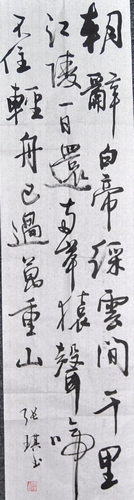 朝辭白帝綵雲間千里
江陵一日還两岸猿聲啼
不住輕舟已過萬重山
張琪书